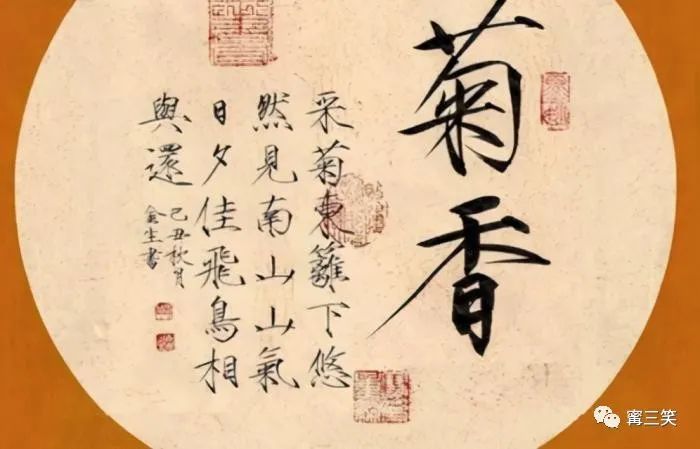 菊香
采菊東籬下悠
然見南山山氣
日夕佳飛鳥相
與還
己丑秋月
金生書
甯三笑